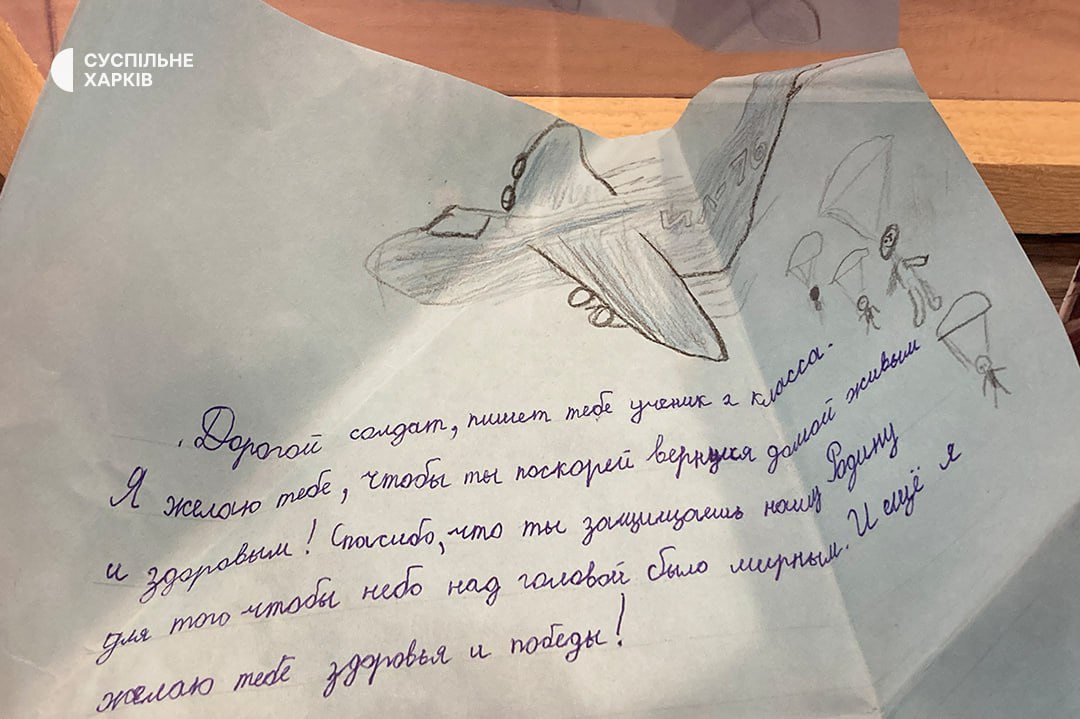 СУСПІЛЬНЕ
ХАРКІВ
ИЛ-76
Дорогой солдат, пишет тебе ученик 2 класса.
Я желаю тебе, чтобы ты поскорей вернулся домой живым
и здоровым! Спасибо, что ты защищаешь нашу Родину
для того чтобы небо над головой было мирным. И ещё я
желаю тебе здоровья и победы!